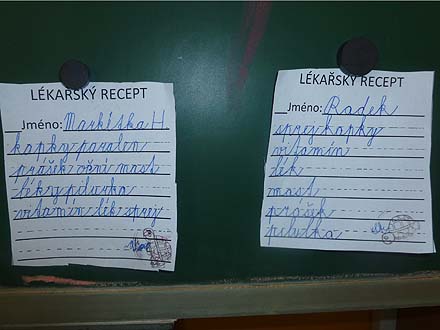 LÉKAŘSKÝ RECEPT
Jméno: Markétka H
kapky paralen
prášek oční mast
léky pilulka
vitamín lék sprej
LÉKAŘSKÝ RECEPT
Jméno: Radek
sprej kapky
vitamín
lék
mast
prášek
pilulka